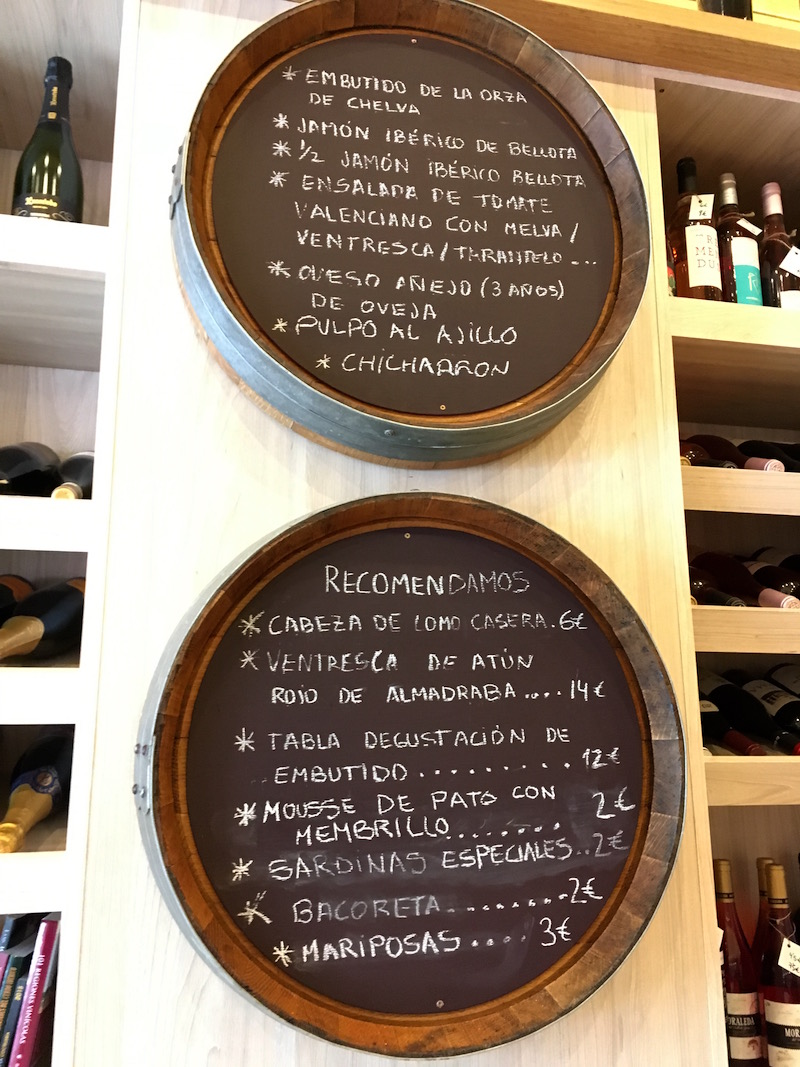 * EMBUTIDO DE LA ORZA
DE CHELVA
* JAMÓN IBÉRICO DE BELLOTA
* 1/2 JAMÓN IBÉRICO BELLOTA
* ENSALADA DE TOMATE
VALENCIANO CON MELVA/
VENTRESCA/TARANTELO...
* QUESO AÑEJO (3 AÑOS)
DE OVEJA
* PULPO AL AJILLO
* CHICHARRON
RECOMENDAMOS
* CABEZA DE LOMO CASERA. 6€
* VENTRESCA DE ATÚN
ROJO DE ALMADRABA.... 14€
* TABLA DEGUSTACIÓN DE
EMBUTIDO.......... 12€
* MOUSSE DE PATO CON
MEMBRILLO........ 2€
* SARDINAS ESPECIALES..2€
* BACORETA.........2€
* MARIPOSAS.... 3€
TRE
MEN
DU
101 REGIONES VINÍCOLAS
MORALEDA